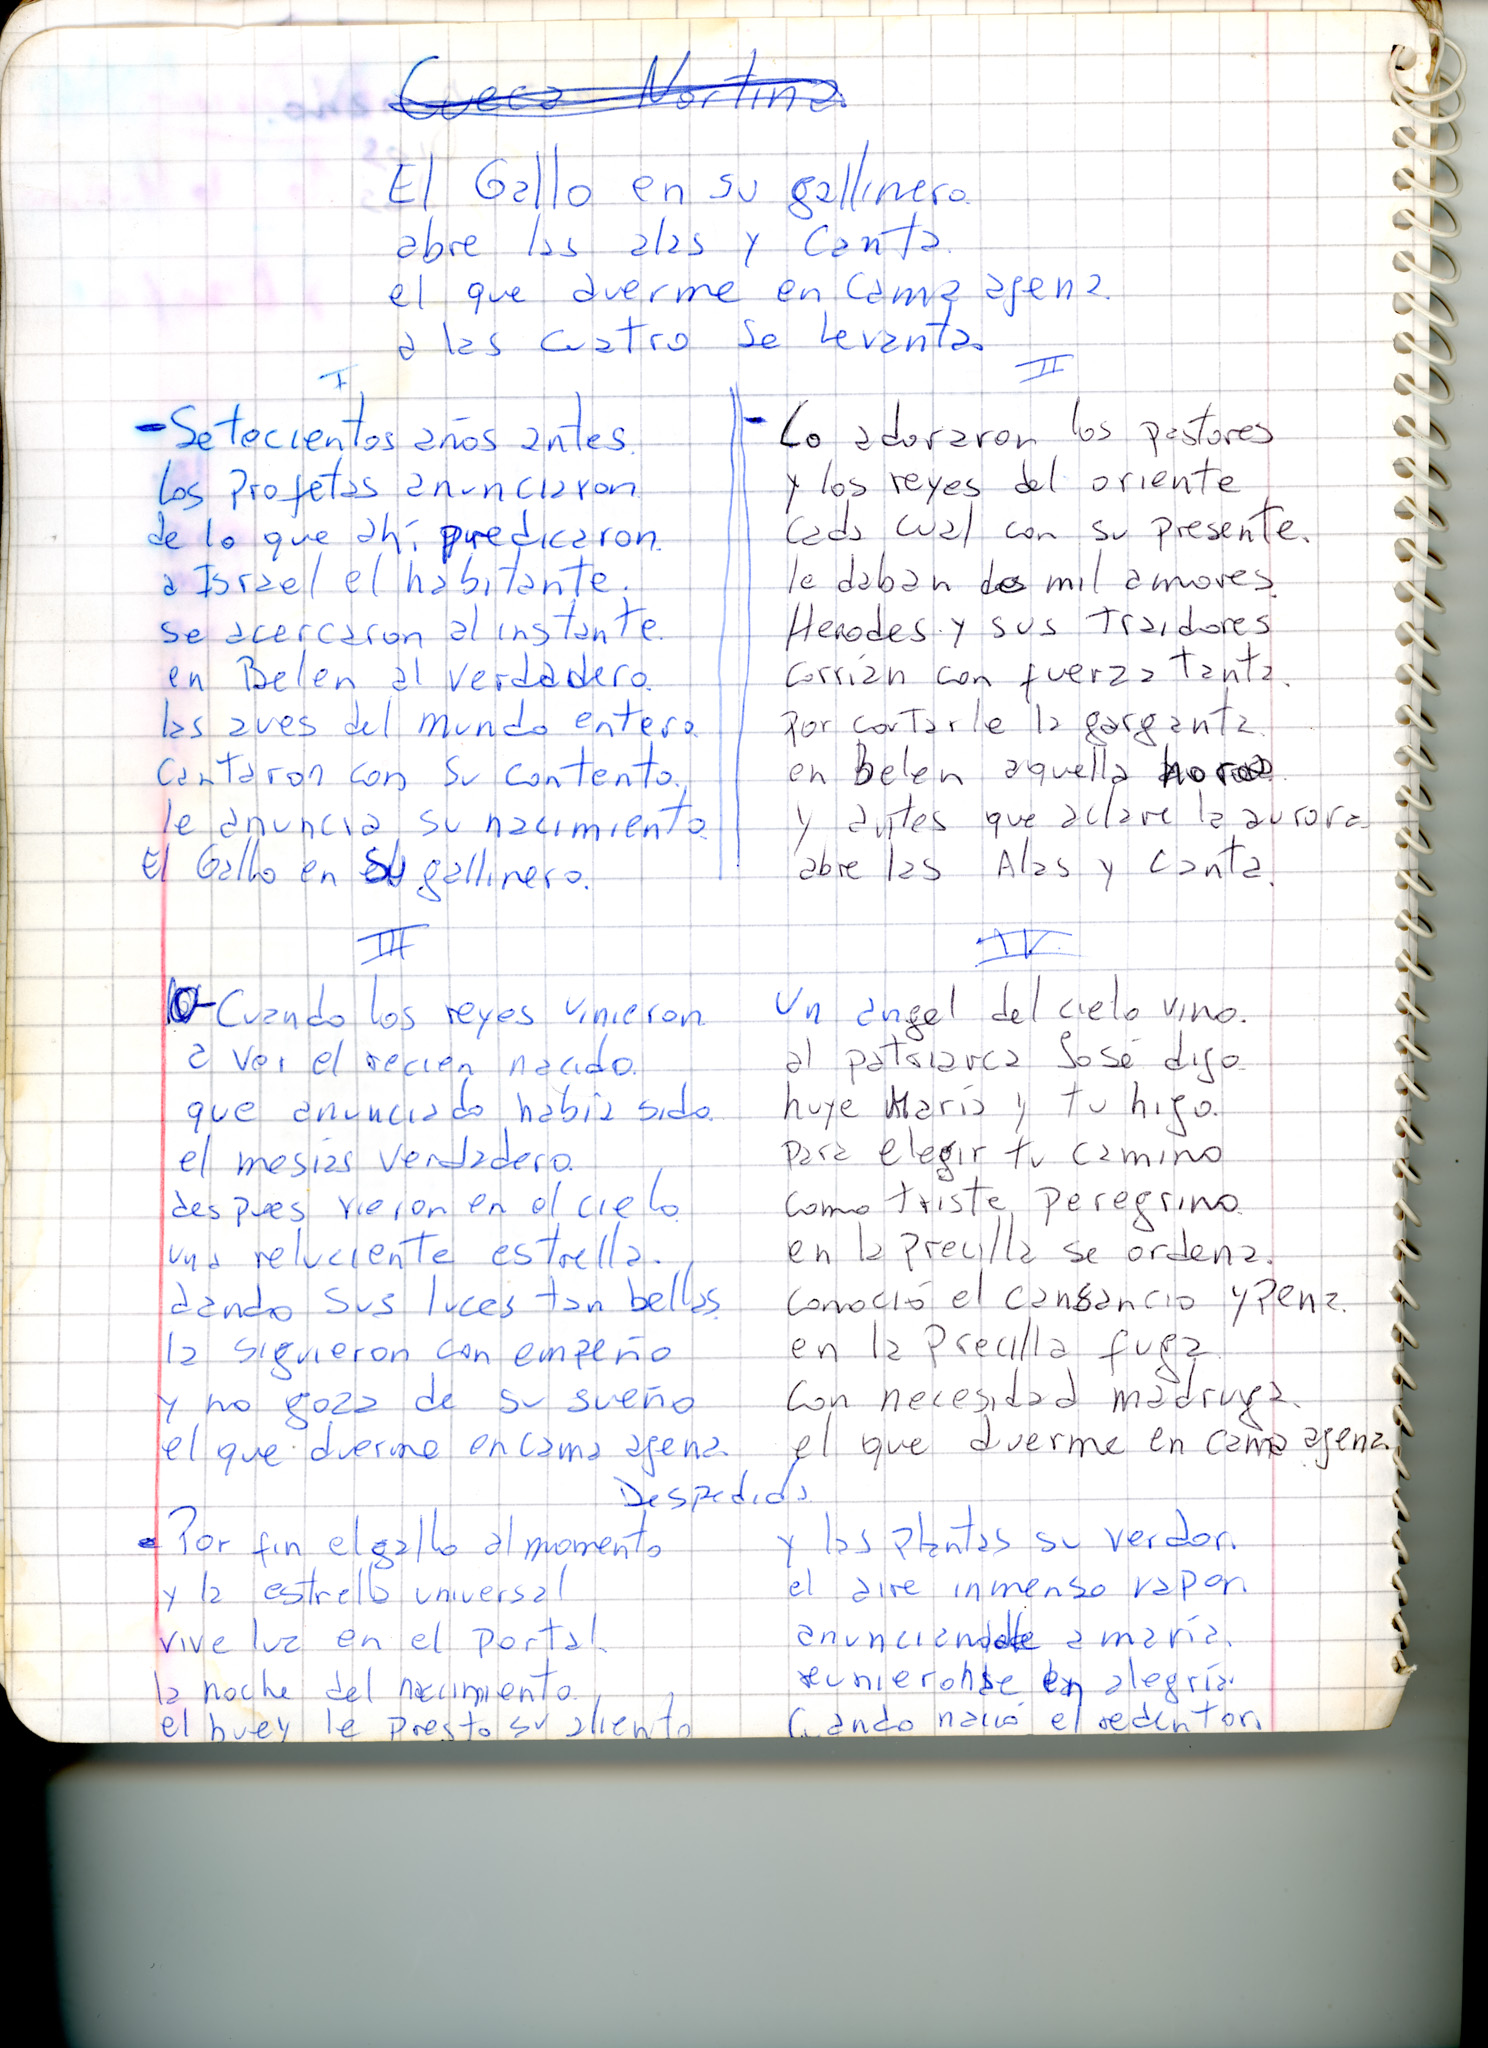 Cueca Nortina
El Gallo en su gallinero.
abre las alas y canta.
el que duerme en cama agena.
a las cuatro se levanta.
I
- Setecientos años antes.
los profetas anunciaron
de lo que ahí predicaron.
a Israel el habitante.
se acercaron al instante.
en Belen al verdadero.
las aves del mundo entero.
cantaron con su contento.
le anuncia su nacimiento.
El Gallo en su gallinero.
II
- Lo adoraron los pastores
y los reyes del oriente
cada cual con su presente.
le daban de mil amores.
Herodes y sus traidores
corrián con fuerza tanta.
por cortarle la garganta.
en belen aquella hora.
y antes que aclare la aurora.
abre las Alas y canta.
III
- Cuando los reyes vinieron
a ver el recien nacido.
que anunciado había sido.
el mesias verdadero.
despues vieron en el cielo.
una reluciente estrella.
dando sus luces tan bellas.
la siguieron con empeño
y no goza de su sueño
el que duerme en cama agena.
IV
Un angel del cielo vino.
al patriarca José dijo
huye María y tu higo.
para elegir tu camino
como triste peregrino.
en la precilla se ordena.
conoció el cansancio y pena.
en la precilla fuga.
con necesidad madruga.
el que duerme en cama agena.
Despedida
- Por fin el gallo al momento
y la estrella universal
vive luz en el portal.
la noche del nacimiento.
el buey le presto su aliento
y las plantas su verdor.
el aire inmenso vapor.
anunciandole a maría.
reunieronse en alegría.
cuando nació el redentor.